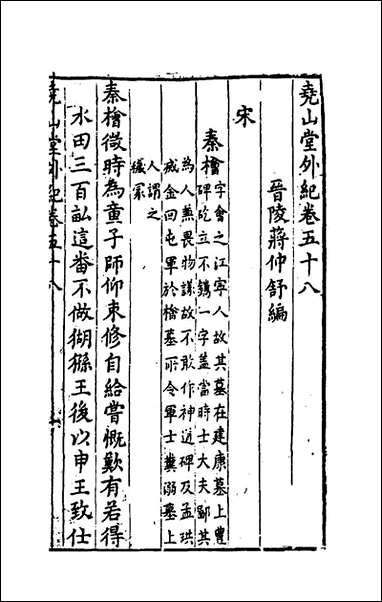 堯山堂外紀卷五十八
晉陵蔣仲舒編
宋
秦檜字會之江寧人故其墓在建康墓上豐
碑屹立不鐫一字蓋當時士大夫鄙其
為人兼畏物議故不敢作神道碑及孟珙
滅金回屯軍於檜墓所令軍士糞溺墓上
人謂之
穢冢
秦檜微時為童子師仰束修自給嘗慨歎有若得
水田三百畝這番不做猢猻王後以申王致仕
堯山堂外紀卷五十八